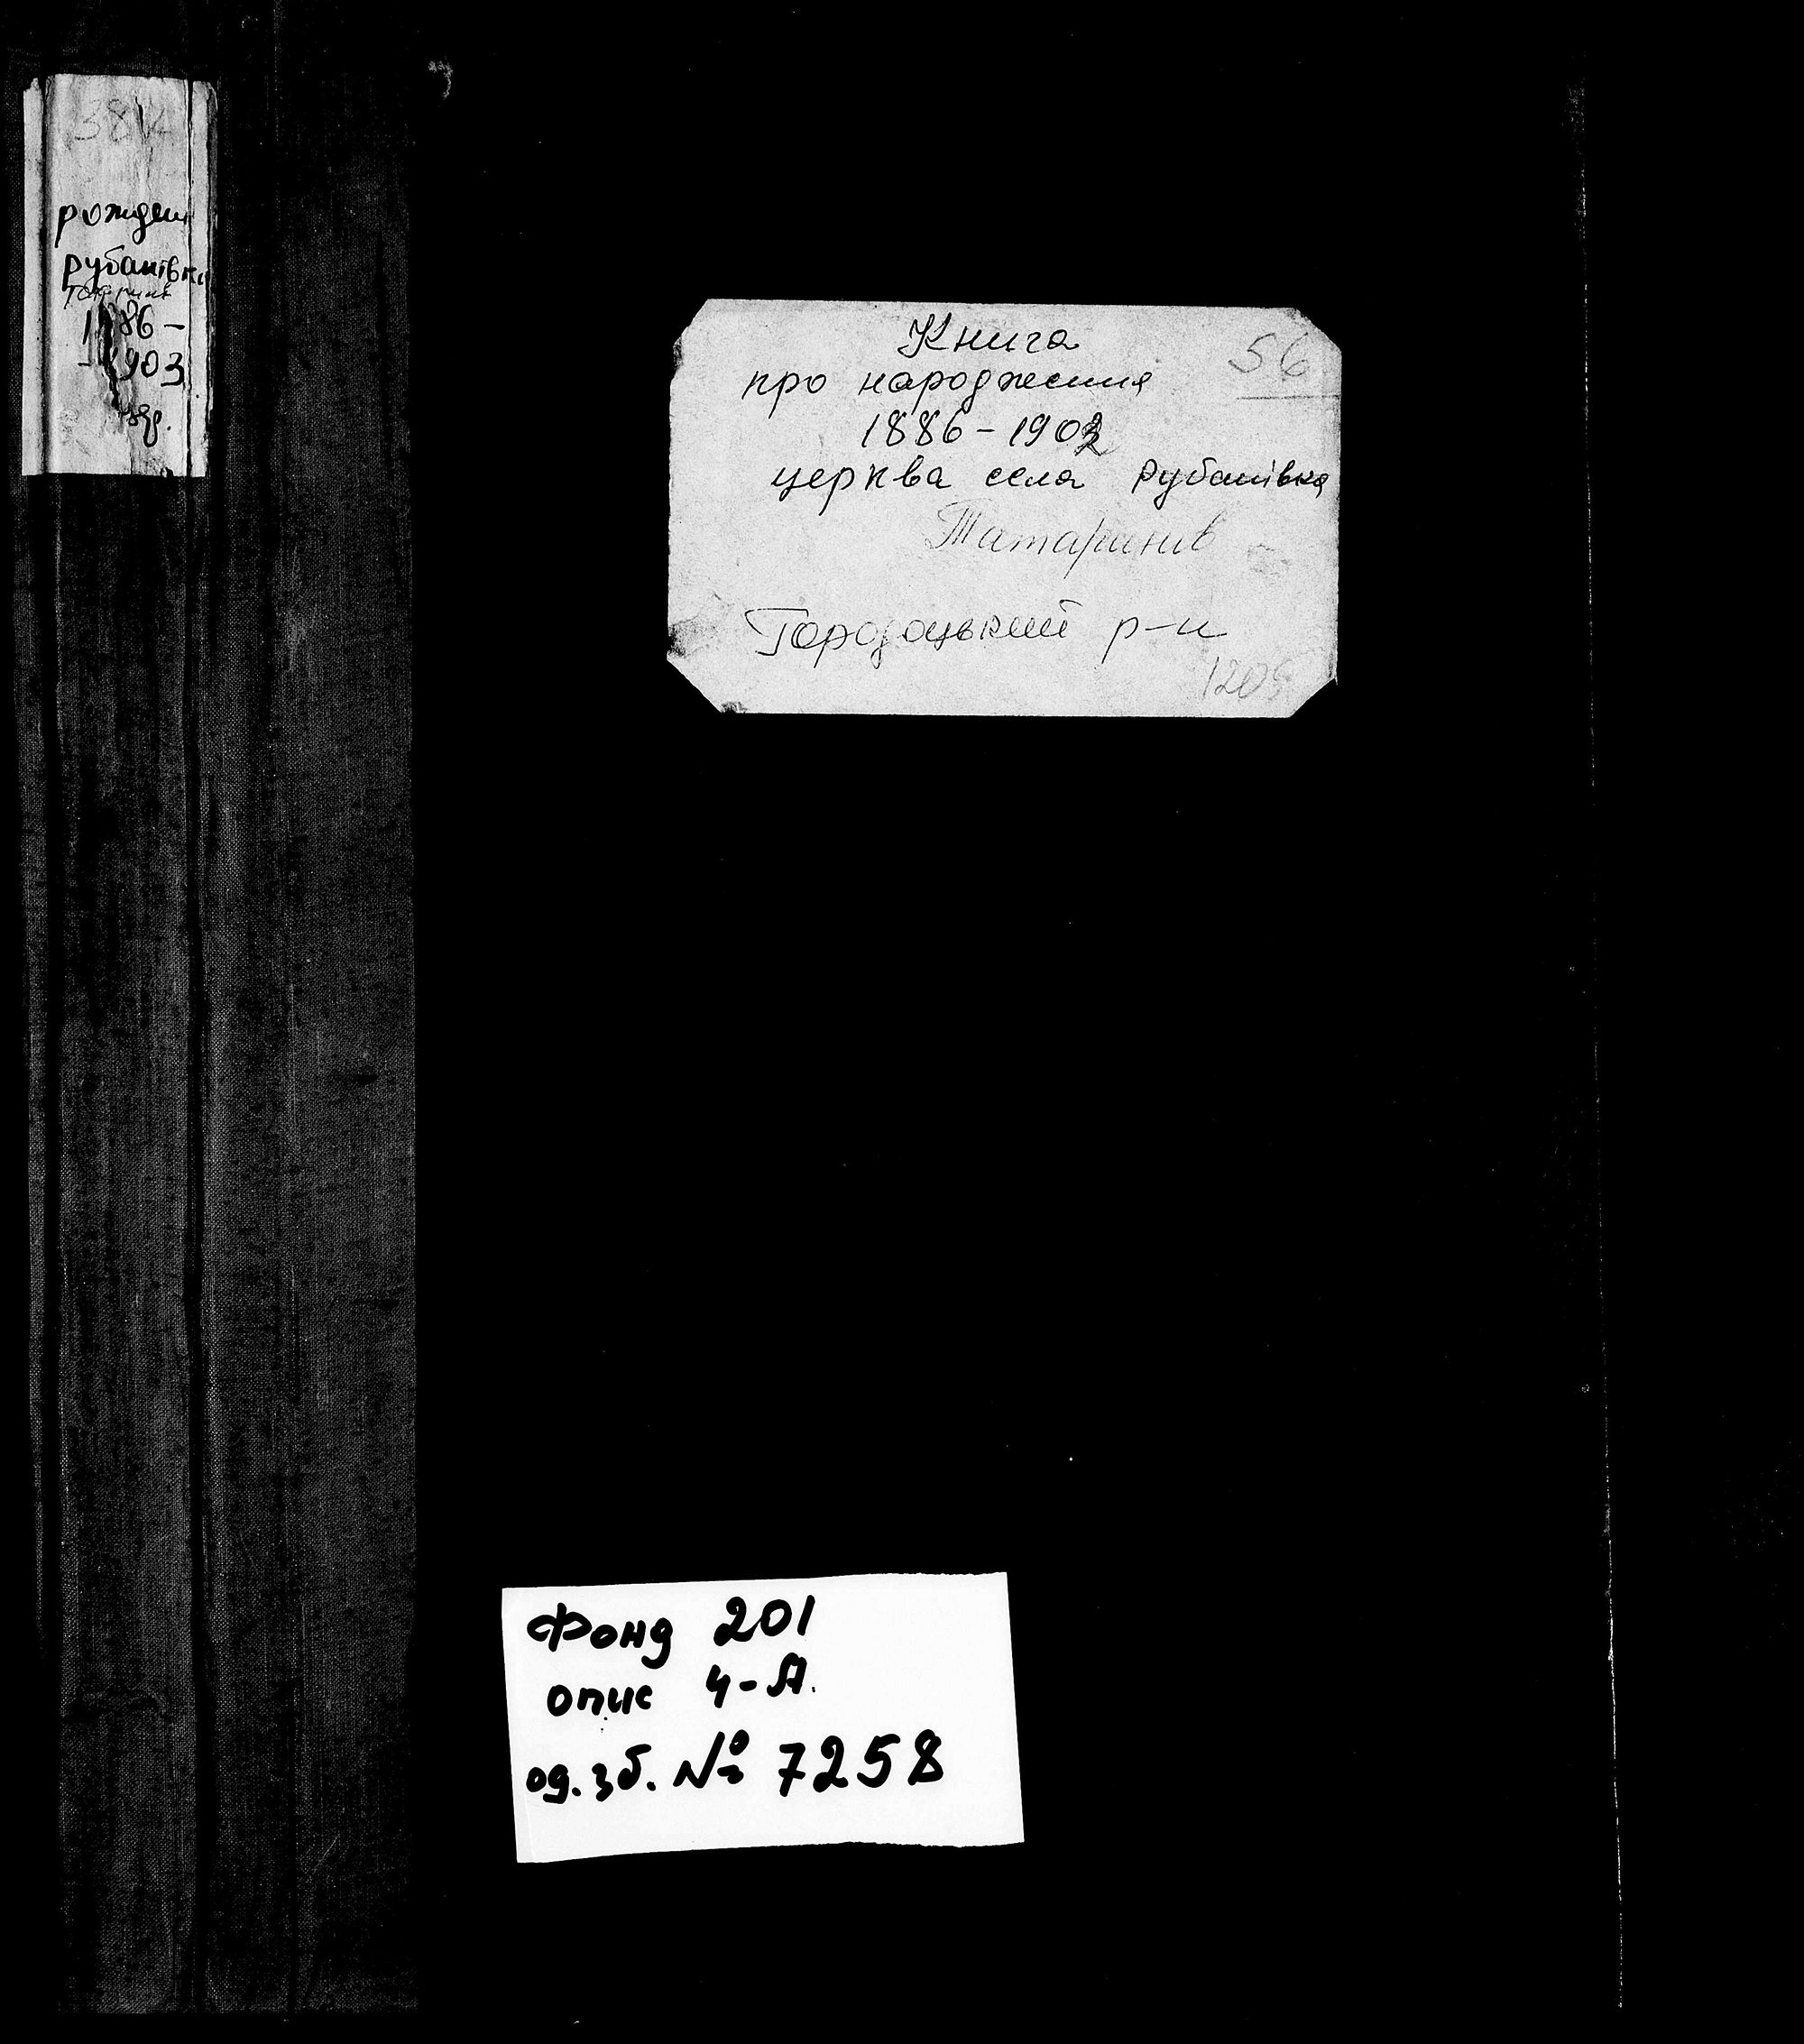 рожден
рубанівка
1886 -
- 1903
Книга
56
про народження
1886 - 1903
церква села Рубанівка
Татаринів
Городоцький р-н
1205
Фонд 201
опис 4-А.
од. зб. № 7258